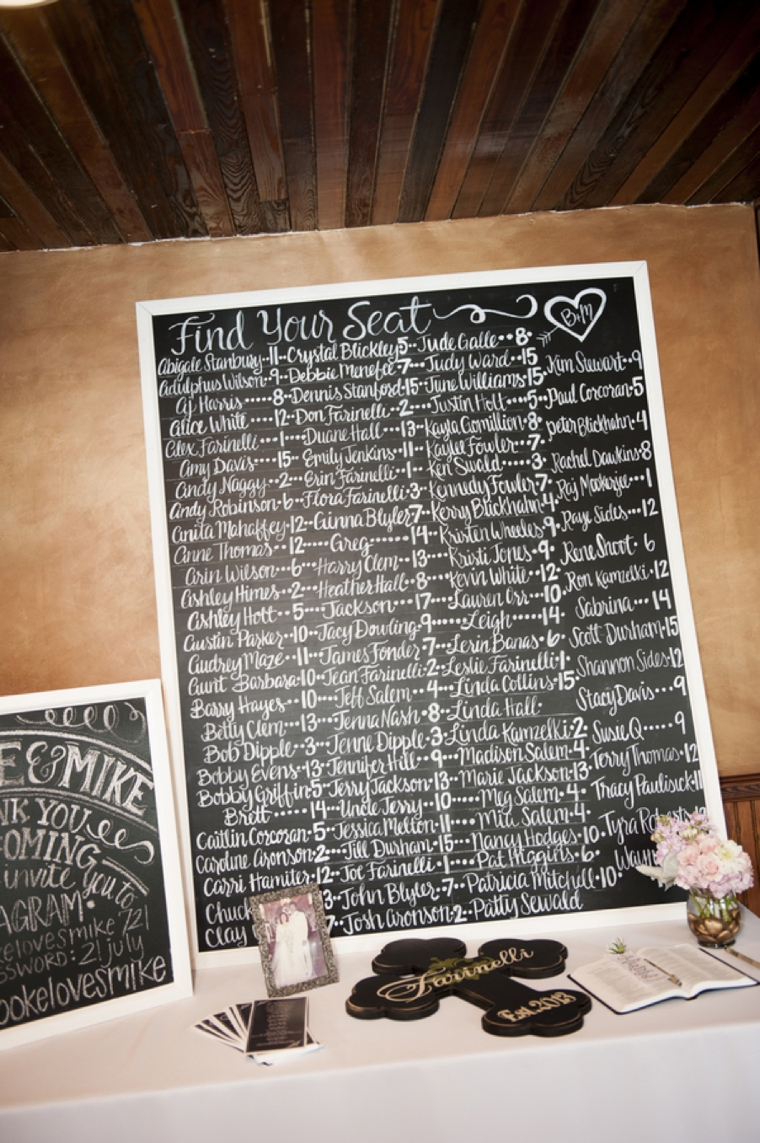 Find Your Seat
B+M
Abigale Stanbury..11
Adulphus Wilson..9
Aj Harris.....8
Alice White....12
Alex Farinelli...1
Amy Davis....15
Andy Naggy..2
Andy Robinson.6
Anita Mahaffey.12
Anne Thomas..12
Arin Wilson...6
Ashley Himes..2
Ashley Hott..5
Austin Parker.10
Audrey Maze..11
Aunt Barbara.10
Barry Hayes...10
Betty Clem...13
Bob Dipple..3
Bobby Evens.13
Bobby Griffin.5
Brett......14
Caitlin Corcoran.5
Caroline Aronson.2
Carri Hamiter.12
Chuck
Clay
Crystal Blickley 5
Debbie Menefee.7
Dennis Stanford.15
Don Farinelli..2
Duane Hall...13
Emily Jenkins..11
Erin Farinelli..1
Flora Farinelli.3
Ginna Blyler 7
Greg......14
Harry Clem..13
Heather Hall.8
Jackson....17
Jacy Dowling.9
James Fonder 7
Jean Farinelli.2
Jeff Salem..4
Jenna Nash.8
Jenne Dipple.3
Jennifer Hill..9
Jerry Jackson.13
Uncle Jerry..10
Jessica Melton.11
Jill Durham.15
Joe Farinelli.1
John Blyler.7
Josh Aronson.2
Jude Galle..8
Judy Ward..15
June Williams.15
Justin Holt...5
Kayla Gamillion.8
Kaylee Fowler..7
Ken Swald....3
Kennedy Fowler 7
Kerry Blickhahn.4
Kristen Wheeles.9
Kristi Jones.9
Kevin White..12
Lauren Orr...10
Leigh.....14
Lerin Banas.6
Leslie Farinelli.1
Linda Collins.15
Linda Hall.
Linda Kamzelki.2
Madison Salem.4
Marie Jackson.13
Meg Salem.4
Mia Salem.4
Nancy Hodges.10
Pat Higgins.6
Patricia Mitchell.10
Patty Sewald
Kim Stewart..9
Paul Corcoran.5
peter Blickhahn.4
Rachel Dawkins.8
Raj Mookerjee...1
Raye Sides...12
Rene Shoot. 6
Ron Kamzelki.12
Sabrina...14
Scott Durham.15
Shannon Sides.12
Stacy Davis...9
Susie Q.....9
Terry Thomas.12
Tracy Paulisick.11
Tyra
Wayn
E & MIKE
NK YOU
OMING
invite you to
AGRAM:
kelovesmike 721
SSWORD: 21 july
ookelovesmike
Farinelli
Est. 2013